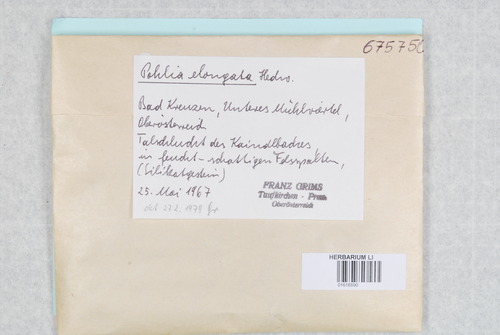 675750
Pohlia elongata Hedw.
Bad Kreuzen, Unteres Mühlviertel,
Oberösterreich
Talschlucht des Kaindlbades,
in feucht-schattigen Felsspalten,
(Silikatgestein)
25. Mai 1967
FRANZ GRIMS
Taufkirchen - Pram
Oberösterreich
HERBARIUM LI